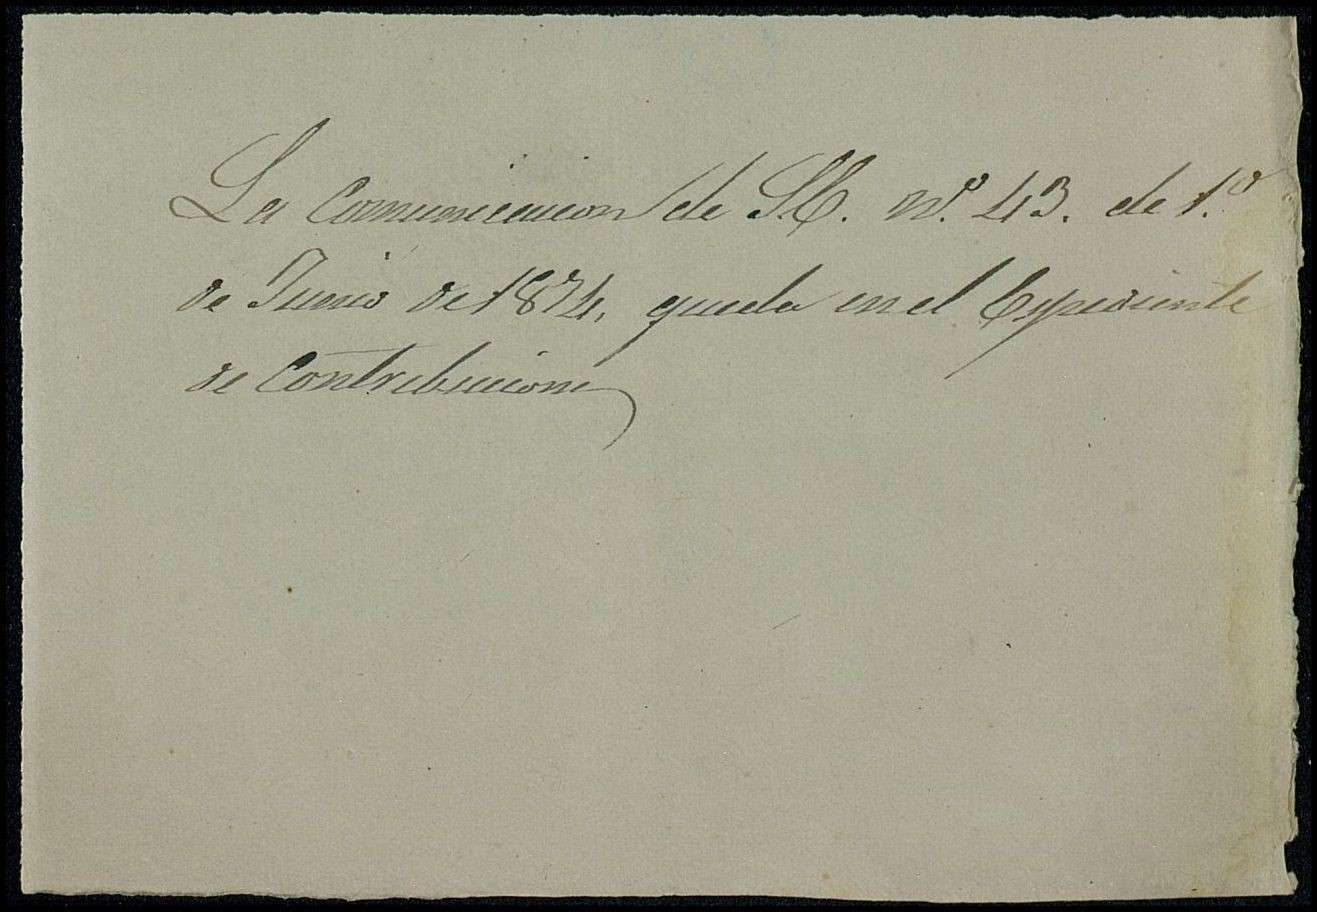 La Comunicacion de n.º 43. de 1.º
de Junio de 1874, queda en el Expediente
de Contribuciones